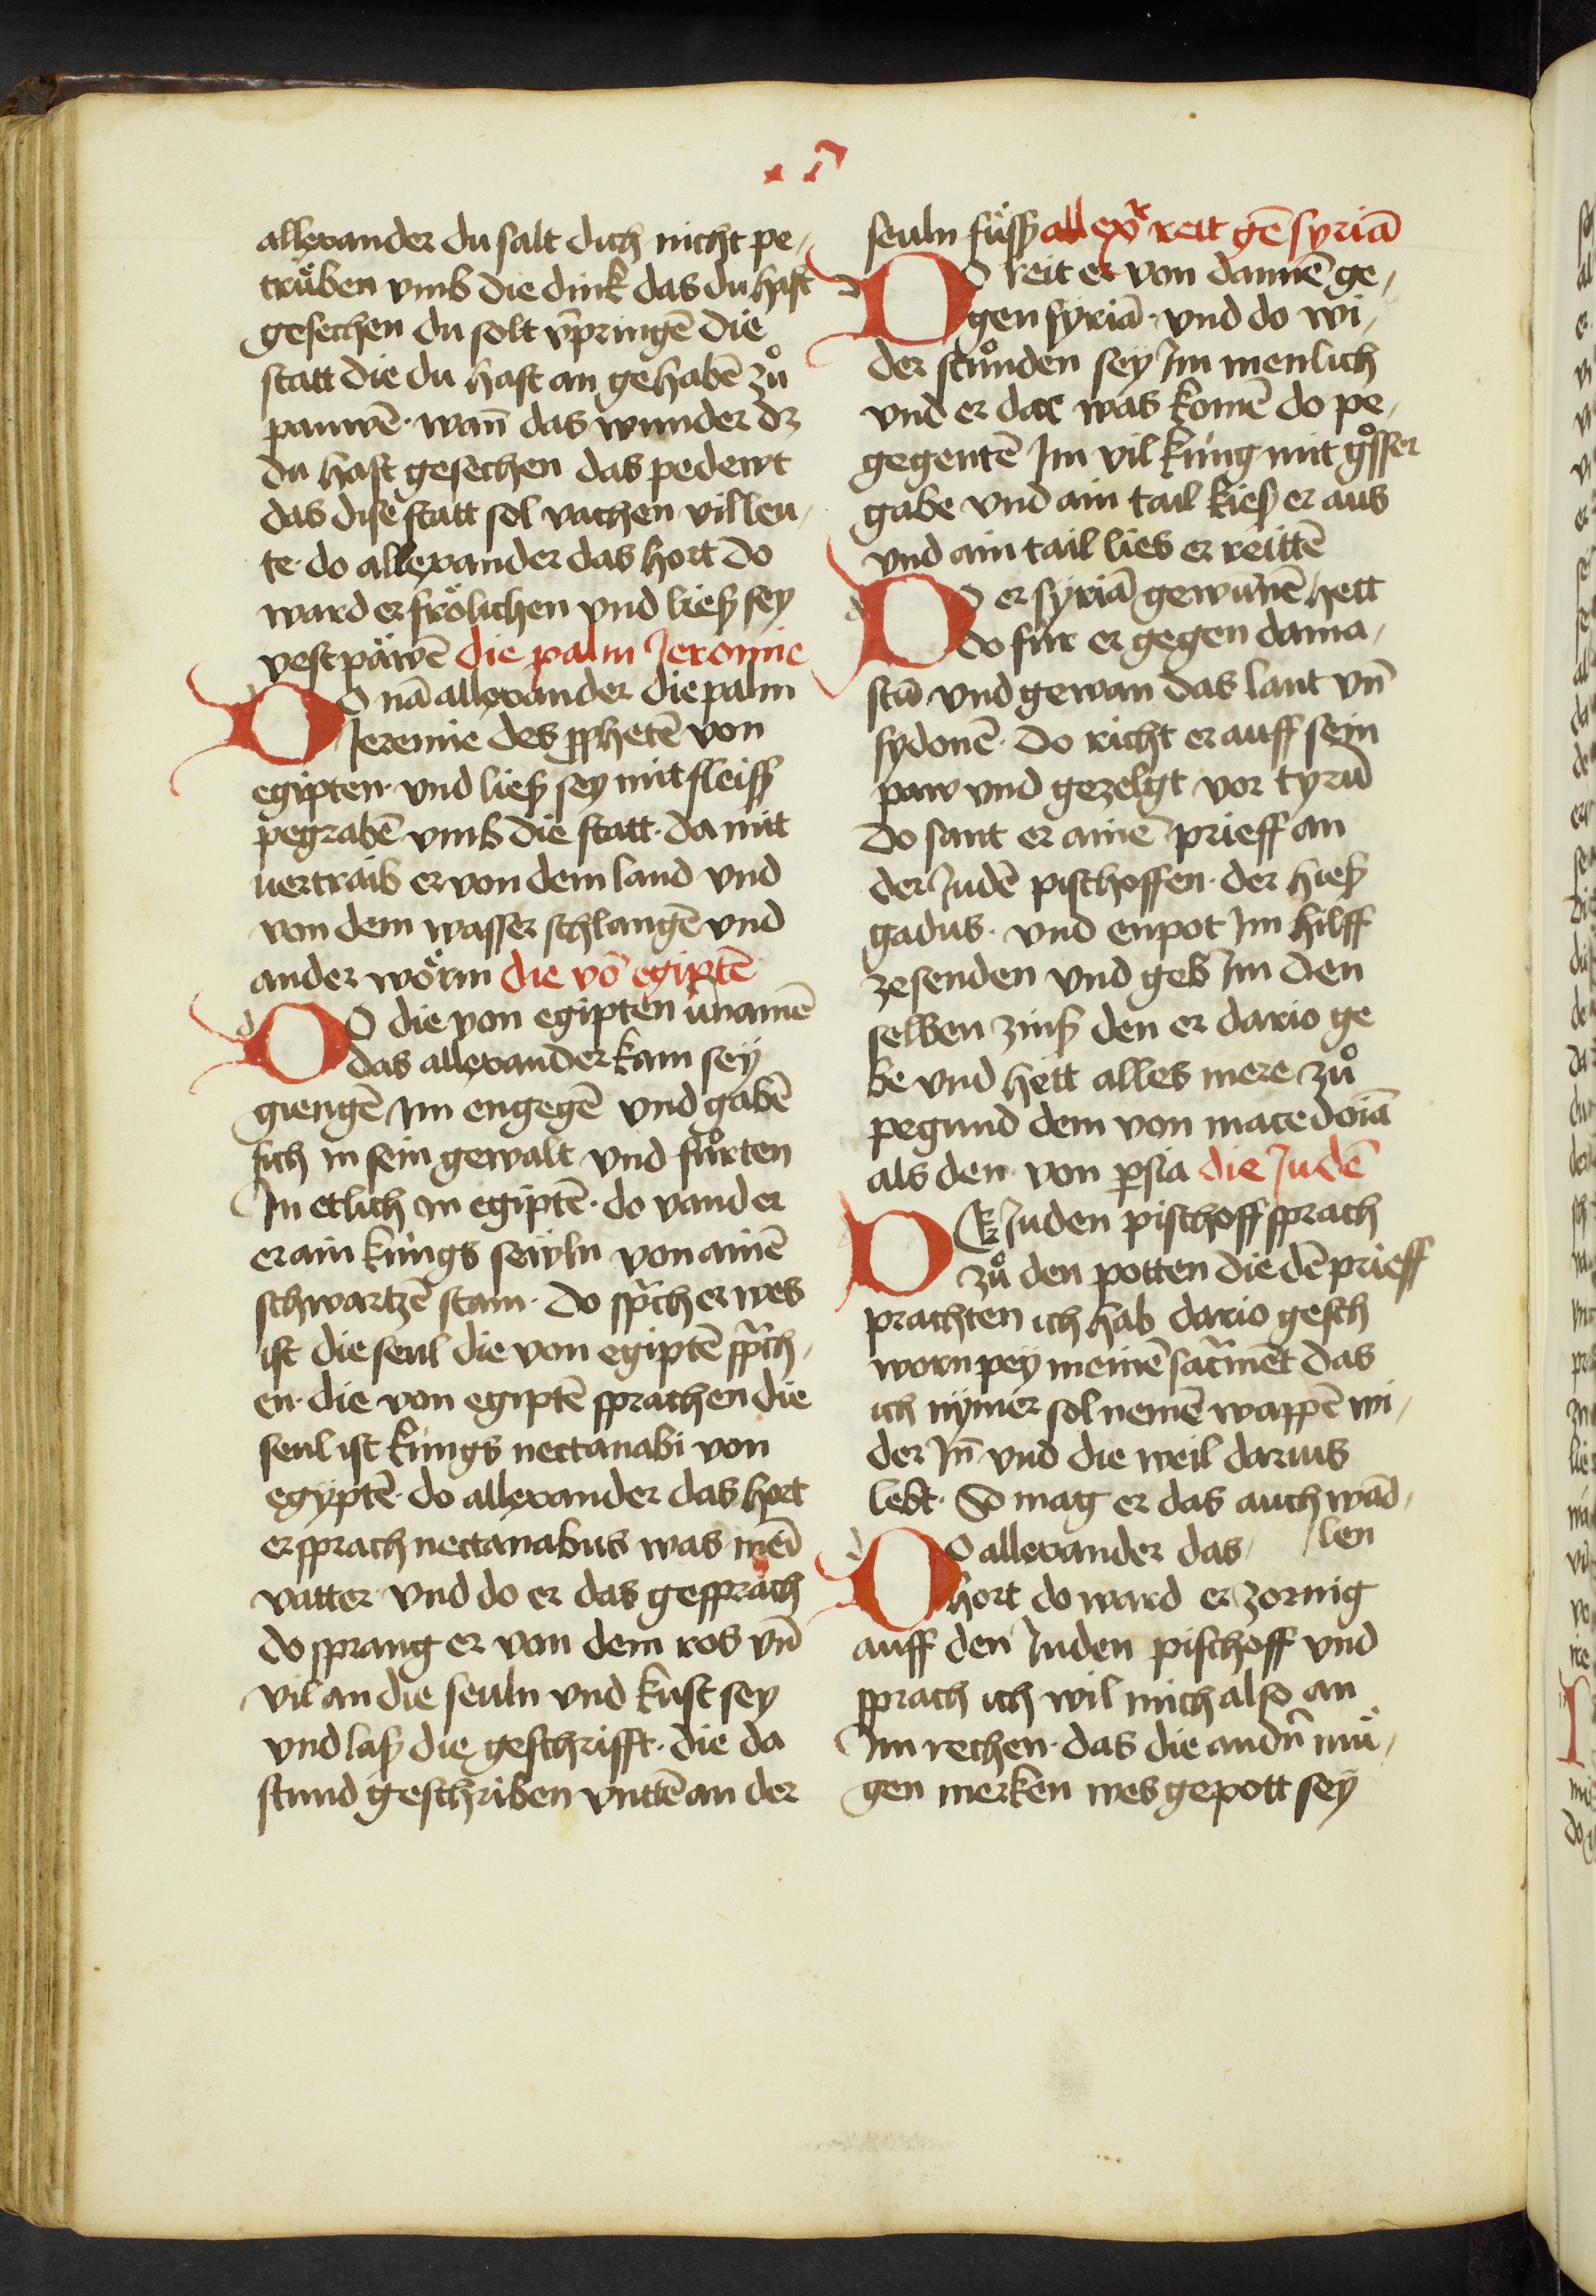 allexander du salt dich nicht pe¬
trüben vmb die dink das du hast
gesechen du solt v̄pringē die
statt die du hast an gehabē zů
pauwē · wan̄ das wunder dz
du hast gesechen das pedewt
das dise statt sol vachen vil leu¬
te · do allexander das hort do
ward er frölichen vnd ließ sey
vest päwē die palm Jeromie
DO nā allexander die palm
Jeremie des ꝓphetē von
egipten · vnd ließ sey mit fleiss
pegrabē vmb die statt · da mitt
uertraib er von dem land vnd
von dem wasser schlangē vnd
ander wörm die vō egiptē
DO die von egipten v̄namē
das allexander kam sey
giengē Im engegē vnd gabē
sich in sein gewalt vnd fůrten
In etlich in egiptē · do vand er
er ain kůngs seüln von ainē
schwartzē stain · do sp̄ch er wes
ist die seul die von egiptē sp̄ch¬
en · die von egiptē sprachen die
seul ist küngs nectanabi von
egyptē · do allexander das hort
er sprach nectanabus was mei̅
vatter · vnd do er das gesprach
do sprang er von dem ros vn̄
vil an die seuln vnd kust sey
vnd laß die geschrifft · die da
stund geschriben vnttē an der
seuln füss allexr̄ reit gē syriā
DO reit er von dannē ge¬
gen syriā · vnd do wi¬
der stůnden sey Im menlich
vnd er dar was komē do pe¬
gegentē Im vil küng mit gosser
gabe vnd ain tail kieß er aus
vnd ain tail lies er reittē
DO er syriā gewunē hett
do für er gegen dama¬
scū vnd gewan das lant vn̄
sydonē · do richt er auff sein
paw vnd gezelgt vor tyrū
do sant er ainē prieff an
der Judē pischoffen · der hieß
gadus · vnd enpot Im hilff
zesenden vnd geb Im den
selben zinß den er dario ge
be vnd hett alles mere zů
pegund dem von macedoiā
als den von ꝑsia die Judē
DEr Juden pischoff sprach
zů den potten die dē prieff
prachten ich hab dario gesch
worn pey meinē sac̄mēt das
ich nymer sol nemē wappē wi¬
der In̄ vnd die weil darius
lebt · So mag er das auch wād¬
len
DO allexander das
hort do ward er zornig
auff den Juden pischoff vnd
sprach ich wil mich also an
Im rechen · das die andn̄ mü¬
gen merken wes gepott sey